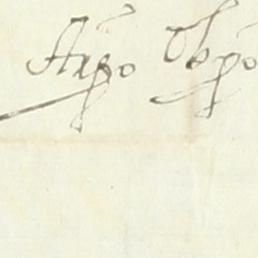 Arzpo Obpo